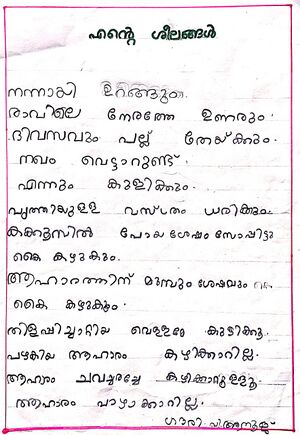 എന്റെ ശീലങ്ങൾ
നന്നായി ഉറങ്ങും.
രാവിലെ നേരത്തേ ഉണരും
ദിവസവും പല്ല് തേയ്ക്കും.
നഖം വെട്ടാറുണ്ട്.
എന്നും കുളിക്കും.
വൃത്തിയുള്ള വസ്ത്രം ധരിക്കും.
കക്കൂസിൽ പോയ ശേഷം സോപ്പിട്ടു
കൈ കഴുകും.
ആഹാരത്തിന് മുമ്പും ശേഷവും
കൈ കഴുകും.
തിളപ്പിച്ചാറ്റിയ വെള്ളമേ കുടിക്കൂ.
പഴകിയ ആഹാരം കഴിക്കാറില്ല.
ആഹാരം ചവച്ചരച്ചേ കഴിക്കാറുള്ളൂ.
ആഹാരം പാഴാക്കാറില്ല.
ഗൗരി